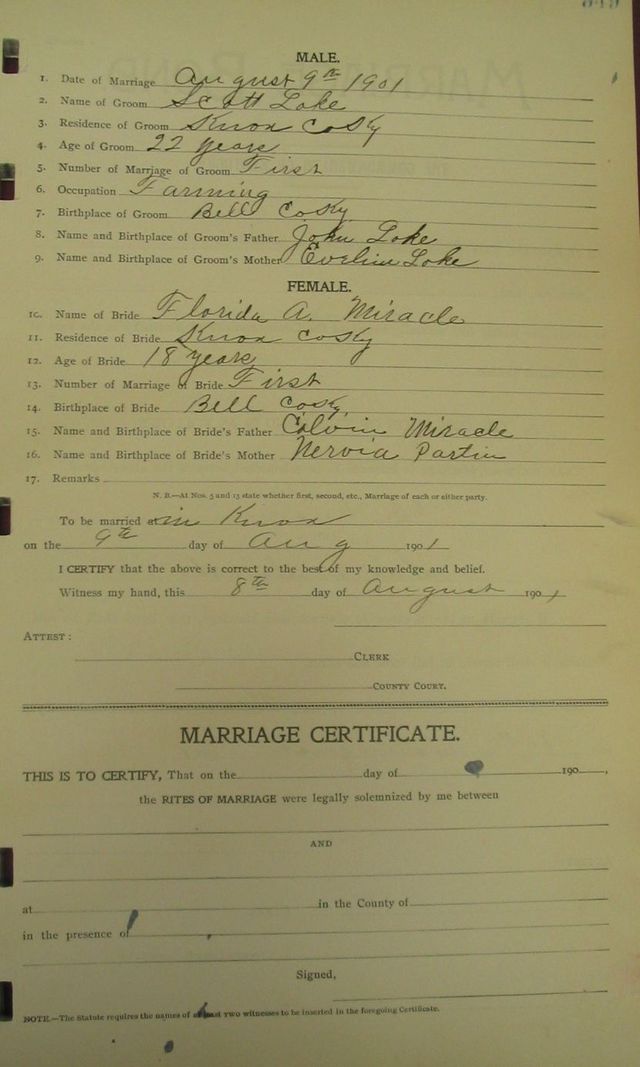 MALE.
1. Date of Marriage August 9th 1901
2. Name of Groom Scott Loke
3. Residence of Groom Knox Co Ky
4. Age of Groom 22 years
5. Number of Marriage of Groom First
6. Occupation Farming
7. Birthplace of Groom Bell Co Ky
8. Name and Birthplace of Groom's Father John Loke
9. Name and Birthplace of Groom's Mother Evelin Loke
FEMALE.
10. Name of Bride Florida A. Miracle
11. Residence of Bride Knox Co Ky
12. Age of Bride 18 years
13. Number of Marriage of Bride First
14. Birthplace of Bride Bell Co Ky.
15. Name and Birthplace of Bride's Father Calvin Miracle
16. Name and Birthplace of Bride's Mother Nervia Partin
17. Remarks
N. B.—At Nos. 5 and 13 state whether first, second, etc., Marriage of each or either party.
To be married at in Knox
on the 9th day of Aug 1901
I CERTIFY that the above is correct to the best of my knowledge and belief.
Witness my hand, this 8th day of August 1901
ATTEST:
CLERK
COUNTY COURT.
MARRIAGE CERTIFICATE.
THIS IS TO CERTIFY, That on the day of 190 ,
the RITES OF MARRIAGE were legally solemnized by me between
AND
at in the County of
in the presence of
Signed,
NOTE.—The Statute requires the names of at least two witnesses to be inserted in the foregoing Certificate.